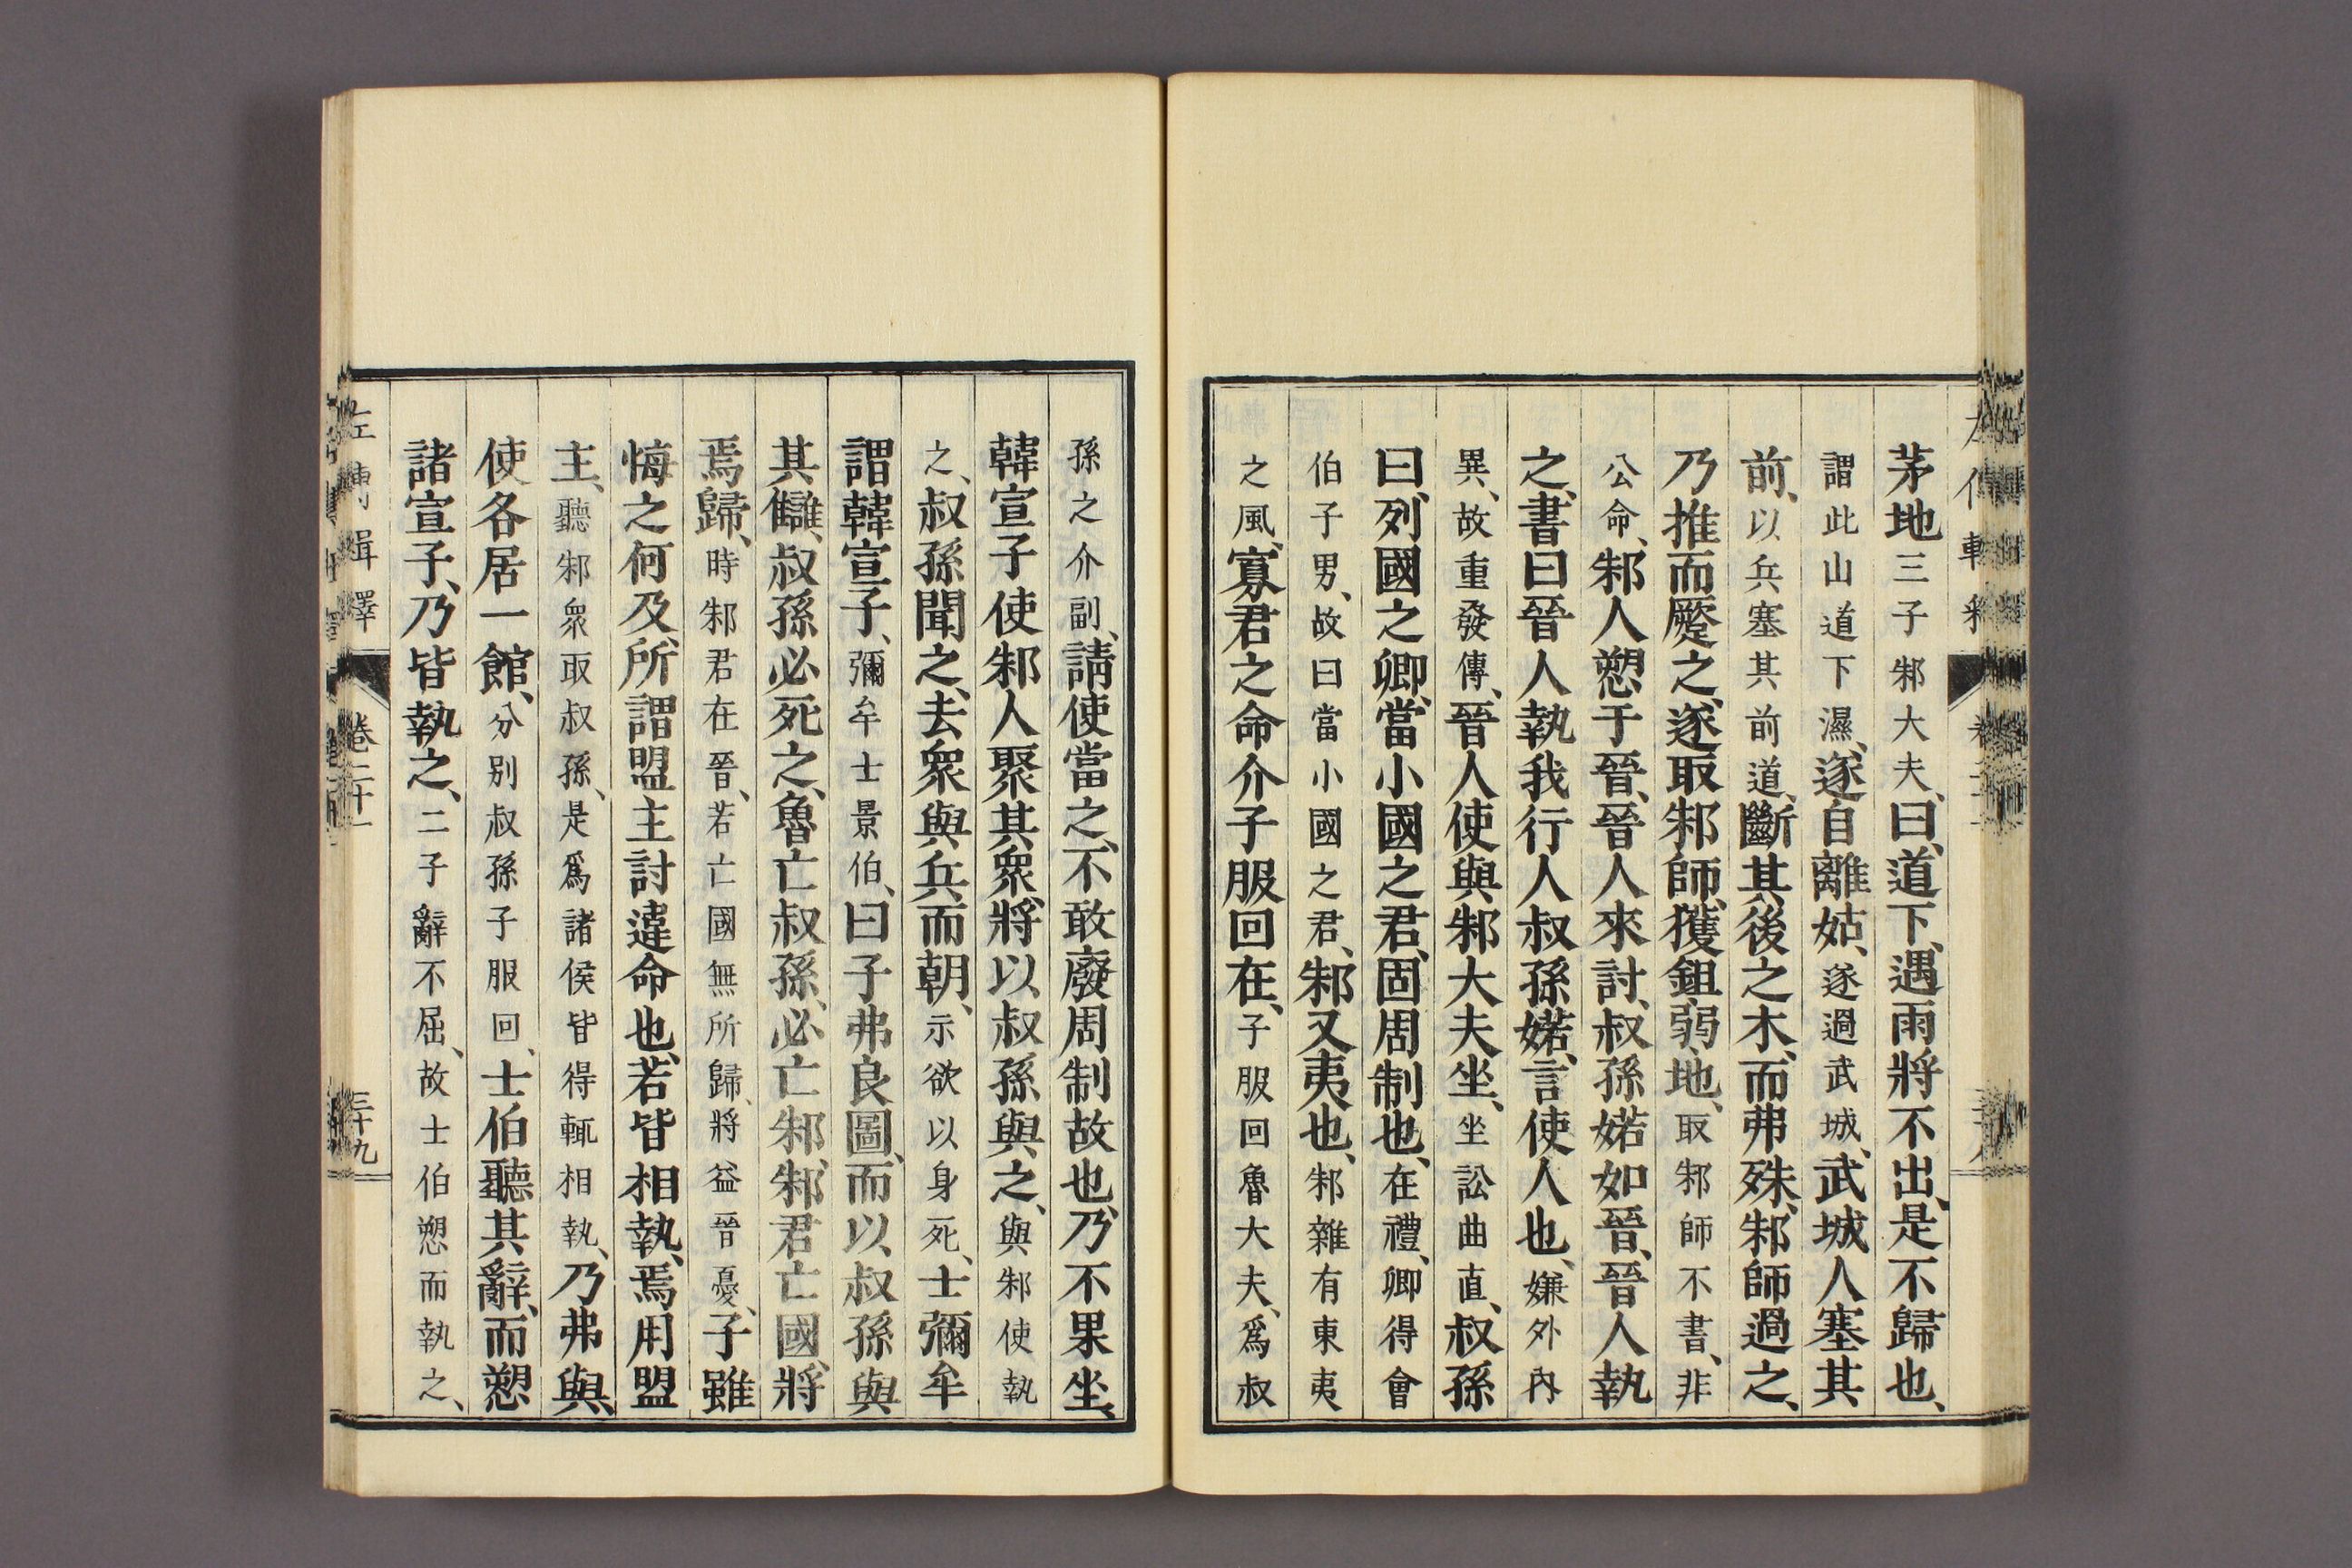 茅地三子邾大夫、曰、道下、遇雨將不出、是不歸也、
謂此山道下濕、遂自離姑、遂過武城、武城人塞其
前、以兵塞其前道、斷其後之木、而弗殊、邾師過之、
乃推而蹷之、遂取邾師、獲鉏弱地、取邾師不書、非
公命、邾人愬于晉、晉人來討、叔孫婼如晉、晉人執
之、書曰晉人執我行人叔孫婼、言使人也、嫌外內
異、故重發傳、晉人使與邾大夫坐、坐訟曲直、叔孫
曰、列國之卿、當小國之君、固周制也、在禮、卿得會
伯子男、故曰當小國之君、邾又夷也、邾雜有東夷
之風、寡君之命介子服回在、子服回魯大夫、爲叔
孫之介副、請使當之、不敢廢周制故也、乃不果坐、
韓宣子使邾人聚其衆、將以叔孫與之、與邾使執
之、叔孫聞之、去衆與兵、而朝、示欲以身死、士彌牟
謂韓宣子、彌牟士景伯、曰子弗良圖、而以叔孫與
其讎、叔孫必死之、魯亡叔孫、必亡邾、邾君亡國、將
焉歸、時邾君在晉、若亡國無所歸、將益晉憂、子雖
悔之何及、所謂盟主討違命也、若皆相執、焉用盟
主、聽邾衆取叔孫、是爲諸侯皆得輒相執、乃弗與、
使各居一館、分別叔孫子服回、士伯聽其辭、而愬
諸宣子、乃皆執之、二子辭不屈、故士伯愬而執之、
左傳輯釋
卷二十一
三十九